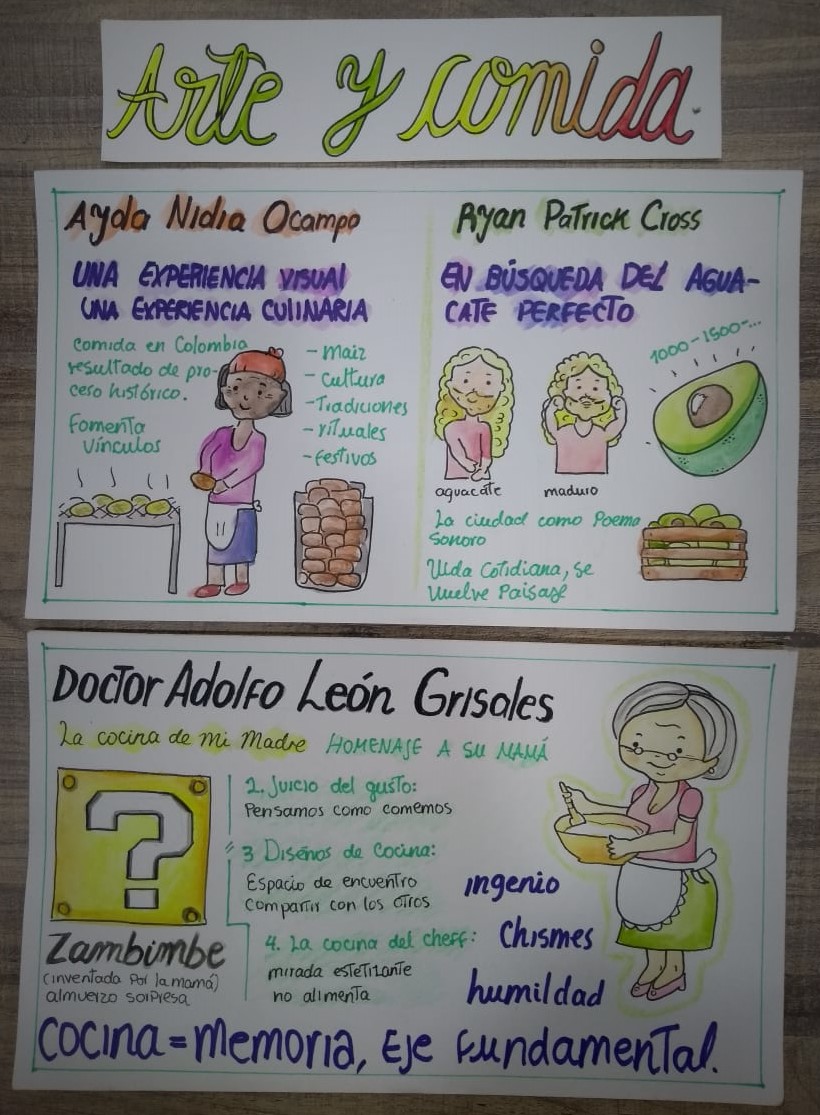 Arte y comida.
Ayda Nidia Ocampo
UNA EXPERIENCIA VISUAL
UNA EXPERIENCIA CULINARIA
comida en Colombia
resultado de pro-
ceso histórico.
Fomenta
vínculos
- Maiz
- Cultura
- Tradiciones
- rituales
- festivos
Ryan Patrick Cross
EN BÚSQUEDA DEL AGUA-
CATE PERFECTO
1000-1500-...
aguacate
maduro
La ciudad como Poema
Sonoro
Vida Cotidiana, se
vuelve Paisaje
Doctor Adolfo León Grisales
La cocina de mi Madre HOMENAJE A SU MAMÁ
?
Zambimbe
(inventada Por la mamá)
almuerzo sorpresa
2. Juicio del gusto:
Pensamos como comemos
3 Diseños de Cocina:
Espacio de encuentro
compartir con los otros
4. La cocina del cheff:
mirada estetizante
no alimenta
ingenio
Chismes
humildad
Cocina = Memoria, Eje Fundamental.